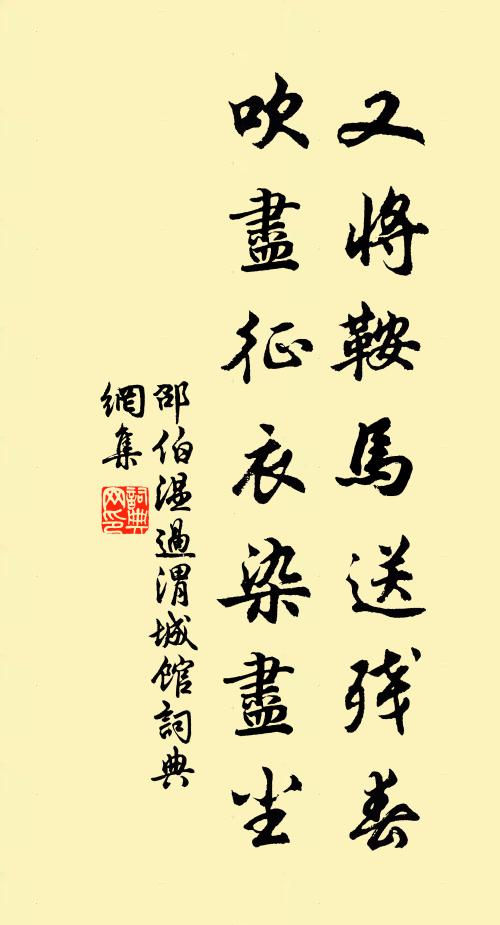 又將鞍馬送残春
吹盡征衣染盡尘
邵伯温過渭城館詞典
網集
詞典
网印